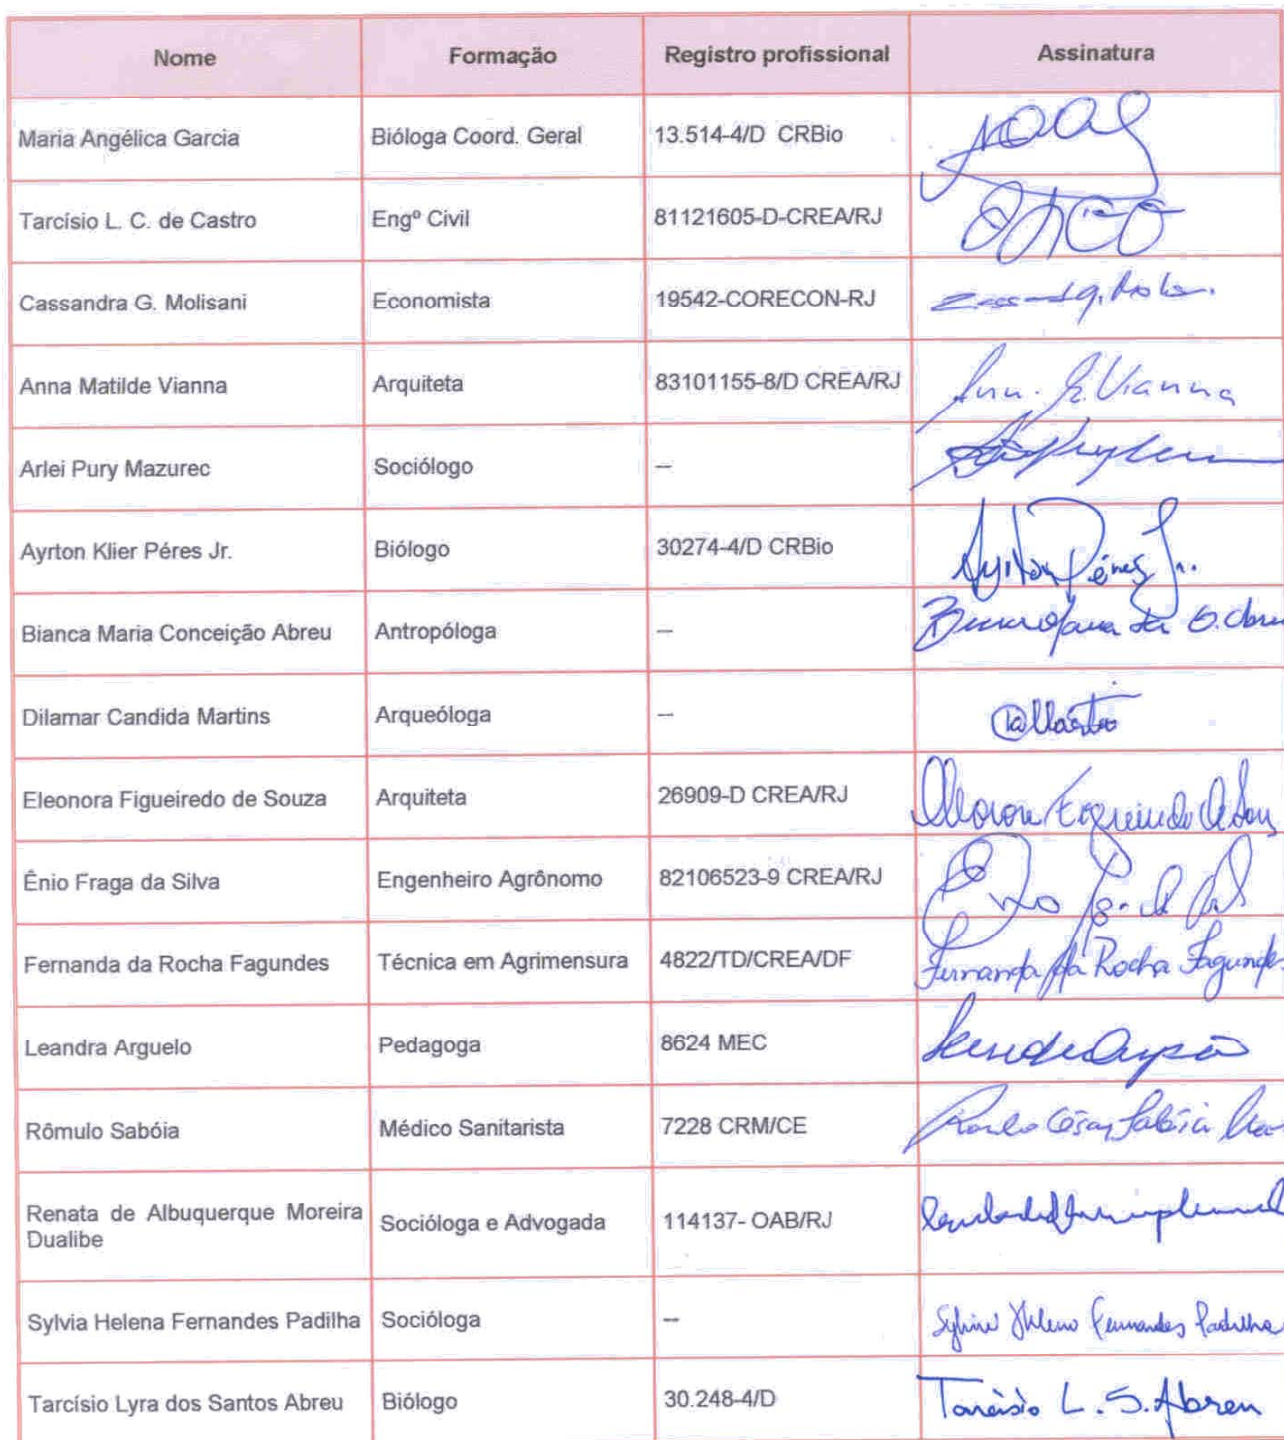 Nome Formação Registro profissional Assinatura
Maria Angélica Garcia Bióloga Coord. Geral 13.514-4/D CRBio
Tarcísio L. C. de Castro Engº Civil 81121605-D-CREA/RJ
Cassandra G. Molisani Economista 19542-CORECON-RJ
Anna Matilde Vianna Arquiteta 83101155-8/D CREA/RJ Vianna
Arlei Pury Mazurec Sociólogo --
Ayrton Klier Péres Jr. Biólogo 30274-4/D CRBio Ayrton Péres Jr.
Bianca Maria Conceição Abreu Antropóloga --
Dilamar Candida Martins Arqueóloga --
Eleonora Figueiredo de Souza Arquiteta 26909-D CREA/RJ
Ênio Fraga da Silva Engenheiro Agrônomo 82106523-9 CREA/RJ
Fernanda da Rocha Fagundes Técnica em Agrimensura 4822/TD/CREA/DF Fernanda da Rocha Fagundes
Leandra Arguelo Pedagoga 8624 MEC
Rômulo Sabóia Médico Sanitarista 7228 CRM/CE
Renata de Albuquerque Moreira
Dualibe Socióloga e Advogada 114137- OAB/RJ
Sylvia Helena Fernandes Padilha Socióloga -- Sylvia Helena Fernandes Padilha
Tarcísio Lyra dos Santos Abreu Biólogo 30.248-4/D Tarcísio L. S. Abreu